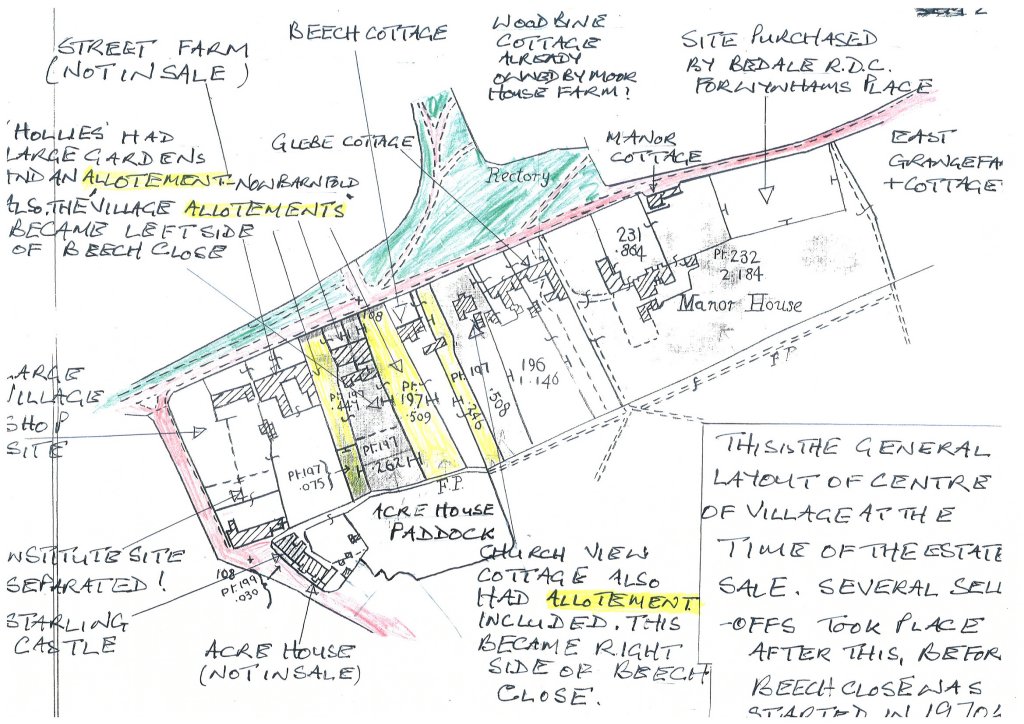 STREET FARM
(NOT IN SALE)
BEECH COTTAGE
WOODBINE
COTTAGE
ALREADY
OWNED BY MOOR
HOUSE FARM!
SITE PURCHASED
BY BEDALE R.D.C.
FOR WYNHAMS PLACE
'HOLLIES' HAD
LARGE GARDENS
IND AN ALLOTEMENT-NOW BARNFOLD
ALSO, THE VILLAGE "ALLOTEMENTS"
BECAME LEFT SIDE
OF BEECH CLOSE
GLEBE COTTAGE
MANOR
COTTAGE
EAST
GRANGE FA
+ COTTAGE
Rectory
231
.864
Pt. 232
2.184
Manor House
108
196
1.146
Pt. 199
.447
Pt.
197
.509
Pt. 197
.346
.508
Pt. 197
.262
Pt. 197
.075
F.P.
F.P.
ARGE
VILLAGE
SHOP
SITE
ACRE HOUSE
PADDOCK
NSTITUTE SITE
SEPARATED!
108
Pt. 199
.030
STARLING
CASTLE
ACRE HOUSE
(NOT IN SALE)
CHURCH VIEW
COTTAGE ALSO
HAD ALLOTEMENT
INCLUDED. THIS
BECAME RIGHT
SIDE OF BEECH
CLOSE.
THIS IS THE GENERAL
LAYOUT OF CENTRE
OF VILLAGE AT THE
TIME OF THE ESTATE
SALE. SEVERAL SELL
-OFFS TOOK PLACE
AFTER THIS, BEFOR
BEECH CLOSE WAS
STARTED IN 1970's